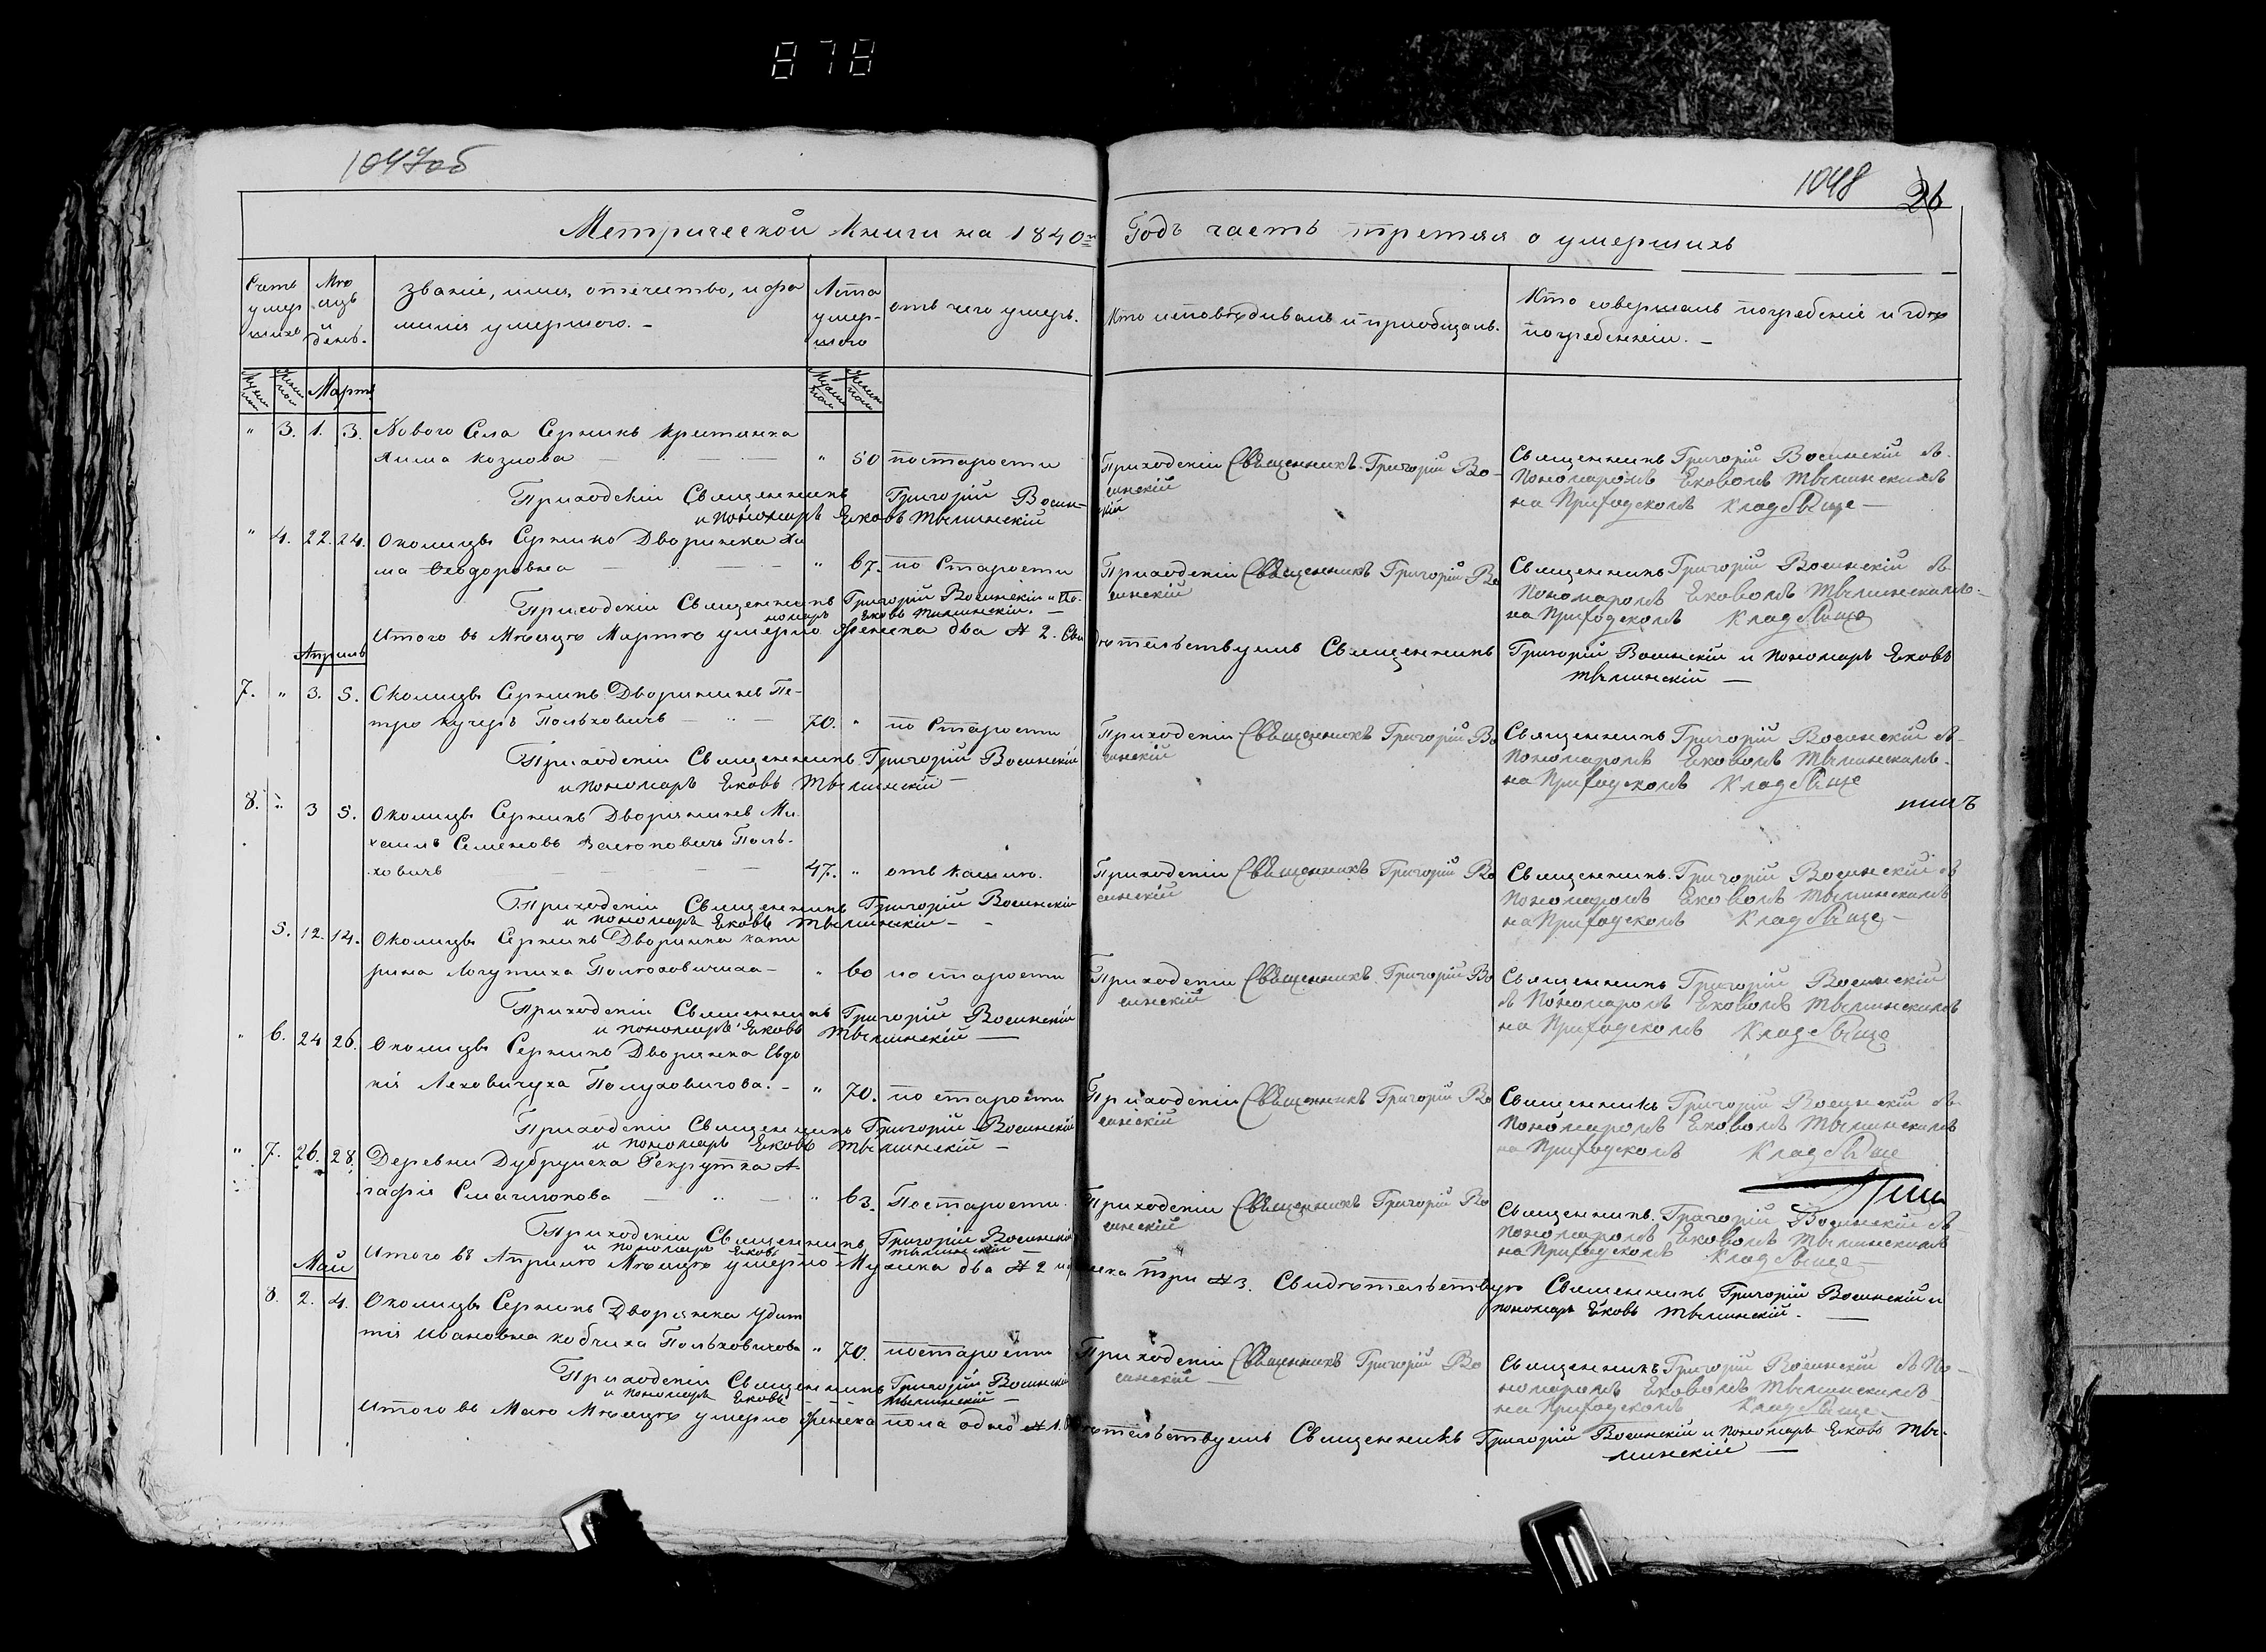 878
1047об
1048
26
Метрической Книги на 1840й Годъ часть третяя о умершихъ
Счетъ умершихъ
Мѣсяцъ и день.
званіе, имя, отечество, и фа
милія умершого. –
Лета умершого
отъ чего умеръ.
Кто исповѣдивалъ и приобщалъ.
Кто совершалъ погребеніе и гдѣ
погребенніи. –
Мартъ
" 3. 1. 3. Нового Села Серникъ крестянка
Акима Козлова " 50 постарости
Приходскій Священникъ Григорій Восин-
скій
и пономаръ Яковъ Твылинскій
Приходскій Священникъ Григорій Во-
синскій
Священникъ Григорій Восинскій съ
Пономаромъ Яковомъ Твылинскимъ
на Приходскомъ Кладбыще –
" 4. 22. 24. Околицы Серникъ Дворянка
Феодоровна " 67. по Старости
Приходскій Священникъ Григорій Восинскій и По-
номаръ Яковъ Твылинскій. –
Приходскій Священникъ Григорій Во
синскій
Священникъ Григорій Восинскій съ
Пономаромъ Яковомъ Твылинскимъ
на Приходскомъ Кладбыще
Итого въ Мѣсяцѣ Мартѣ умерло Женска два № 2. Сви
дѣтельствуемъ Священникъ Григорій Восинскій и Пономаръ Яковъ
Твылинскій –
Апрыль
7. " 3. 5. Околицы Серникъ Дворянинъ Пе-
тро кучеръ Польховичъ 70. " по Старости
Приходскій Священникъ Григорій Восинскій
и пономаръ Яковъ Твылинскій –
Приходскій Священникъ Григорій Во
синскій
Священникъ Григорій Восинскій съ
Пономаромъ Яковомъ Твылинскимъ
на Приходскомъ Кладбыще
8. " 3 5. Околицы Серникъ Дворянинъ Ми
хаилъ Семеновъ Поль-
ховичъ 47. " отъ кашлю.
Приходскій Священникъ Григорій Восинскій
и пономаръ Яковъ Твылинскій –
Приходскій Священникъ Григорій Во
синскій
Священникъ Григорій Восинскій съ
Пономаромъ Яковомъ Твылинскимъ
на Приходскомъ Кладбыще –
5. 12. 14. Околицы Серникъ Дворянка кате
рина Логутиха " 60 по старости
Приходскій Священникъ Григорій Восинскій
и пономаръ Яковъ Твылинскій –
Приходскій Священникъ Григорій Во
синскій
Священникъ Григорій Восинскій
съ Пономаромъ Яковомъ Твылинскимъ
на Приходскомъ Кладбыще
" 6. 24 26. Околицы Серникъ Дворянка Евдо
кія Леховичуха Полуховичова. – " 70. по старости
Приходскій Священникъ Григорій Восинскій
и пономаръ Яковъ Твылинскій –
Приходскій Священникъ Григорій Во
синскій
Священникъ Григорій Восинскій съ
Пономаромъ Яковомъ Твылинскимъ
на Приходскомъ Кладбыще
" 7. 26. 28. Деревни Дубруска Рекрутка А
гафія " 63. Постарости
Приходскій Священникъ Григорій Восинскій
и пономаръ Яковъ Твылинскій –
Приходскій Священникъ Григорій Во
синскій
Священникъ Григорій Восинскій съ
Пономаромъ Яковомъ Твылинскимъ
на Приходскомъ Кладбыще –
Итого въ Априлѣ Мѣсяцѣ умерло Мужска два № 2 и же
нска три № 3. Свидѣтельствую Священникъ Григорій Восинскій и
пономаръ Яковъ Твылинскій. –
Май
8. 2. 4. Околицы Серникъ Дворянка
Ивановна кобчиха Польховичова " 70. постарости
Приходскій Священникъ Григорій Восинскій
и пономаръ Яковъ Твылинскій –
Приходскій Священникъ Григорій Во
синскій
Священникъ Григорій Восинскій съ По-
номаромъ Яковомъ Твылинскимъ
на Приходскомъ Кладбыще
Итого въ Маю Мѣсяцѣ умерло Женска пола одно № 1.
дѣтельствуемъ Священникъ Григорій Восинскій и пономаръ Яковъ Твы-
линскій –